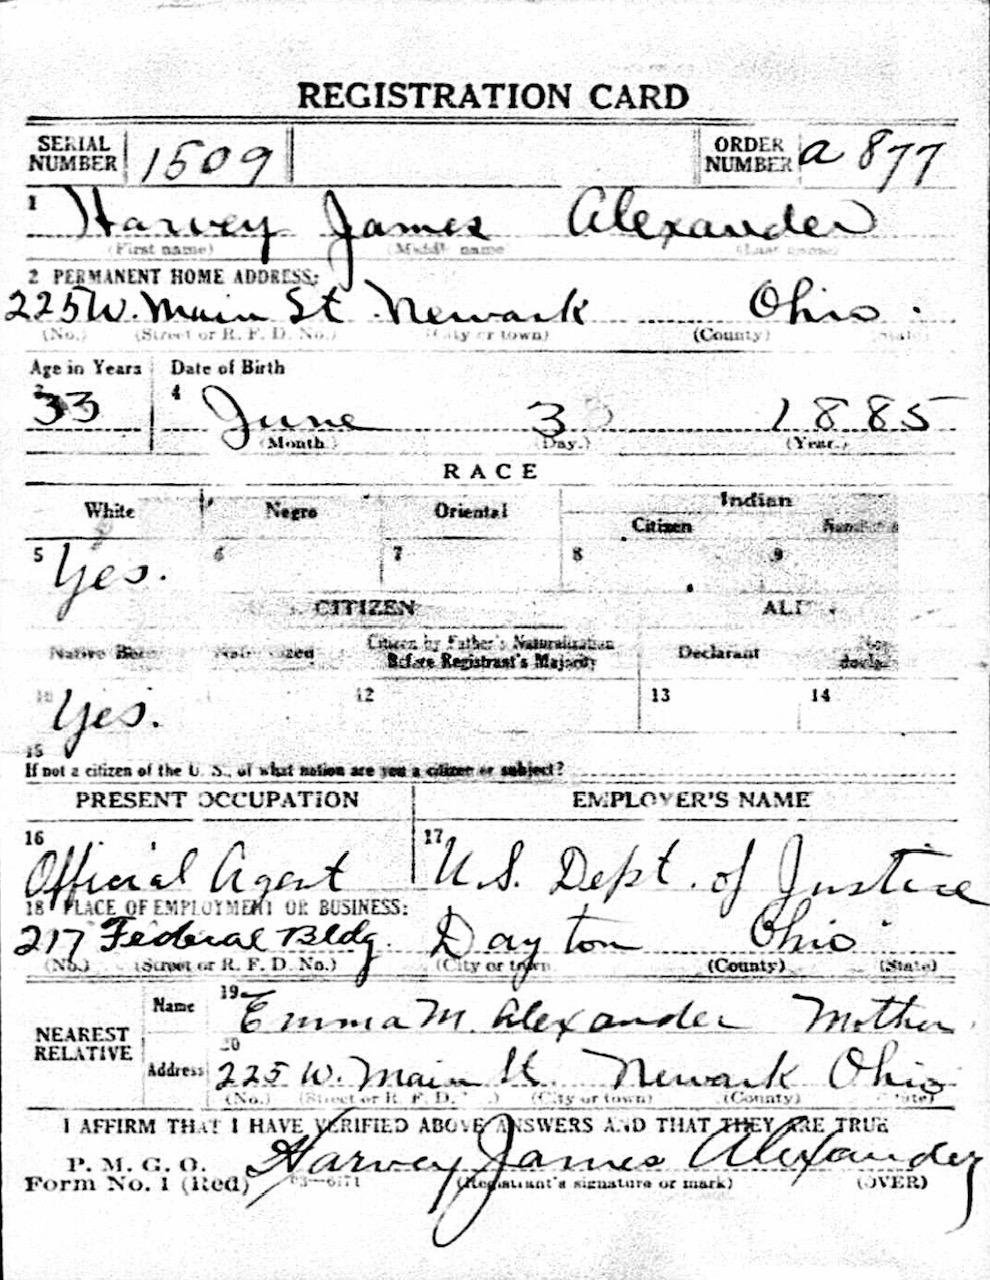 REGISTRATION CARD
SERIAL NUMBER 1509 ORDER NUMBER a 877
1 Harvey James Alexander
(First name) (Middle name) (Last name)
2 PERMANENT HOME ADDRESS:
225 W. Main St Newark Ohio.
(No.) (Street or R. F. D. No.) (City or town) (County) (State)
Age in Years Date of Birth
3 4
33 June 3 1885
(Month.) (Day.) (Year.)
RACE
White Negro Oriental Indian
Citizen
5 6 7 8 9
Yes.
CITIZEN
Native Born Naturalized Citizen by Father's Naturalization Before Registrant's Majority Declarant
10 12 13 14
Yes.
15
If not a citizen of the U. S., of what nation are you a citizen or subject?
PRESENT OCCUPATION EMPLOYER'S NAME
16 17
Official Agent U.S. Dept. of Justice
18 PLACE OF EMPLOYMENT OR BUSINESS:
217 Federal Bldg. Dayton Ohio
(No.) (Street or R. F. D. No.) (City or town) (County) (State)
NEAREST RELATIVE
Name 19 Emma M. Alexander Mother.
20
Address 225 W. Main St. Newark Ohio
(No.) (Street or R. F. D. No.) (City or town) (County) (State)
I AFFIRM THAT I HAVE VERIFIED ABOVE ANSWERS AND THAT THEY ARE TRUE
P. M. G. O. Harvey James Alexander
Form No. 1 (Red) 03—6171 (Registrant's signature or mark) (OVER)